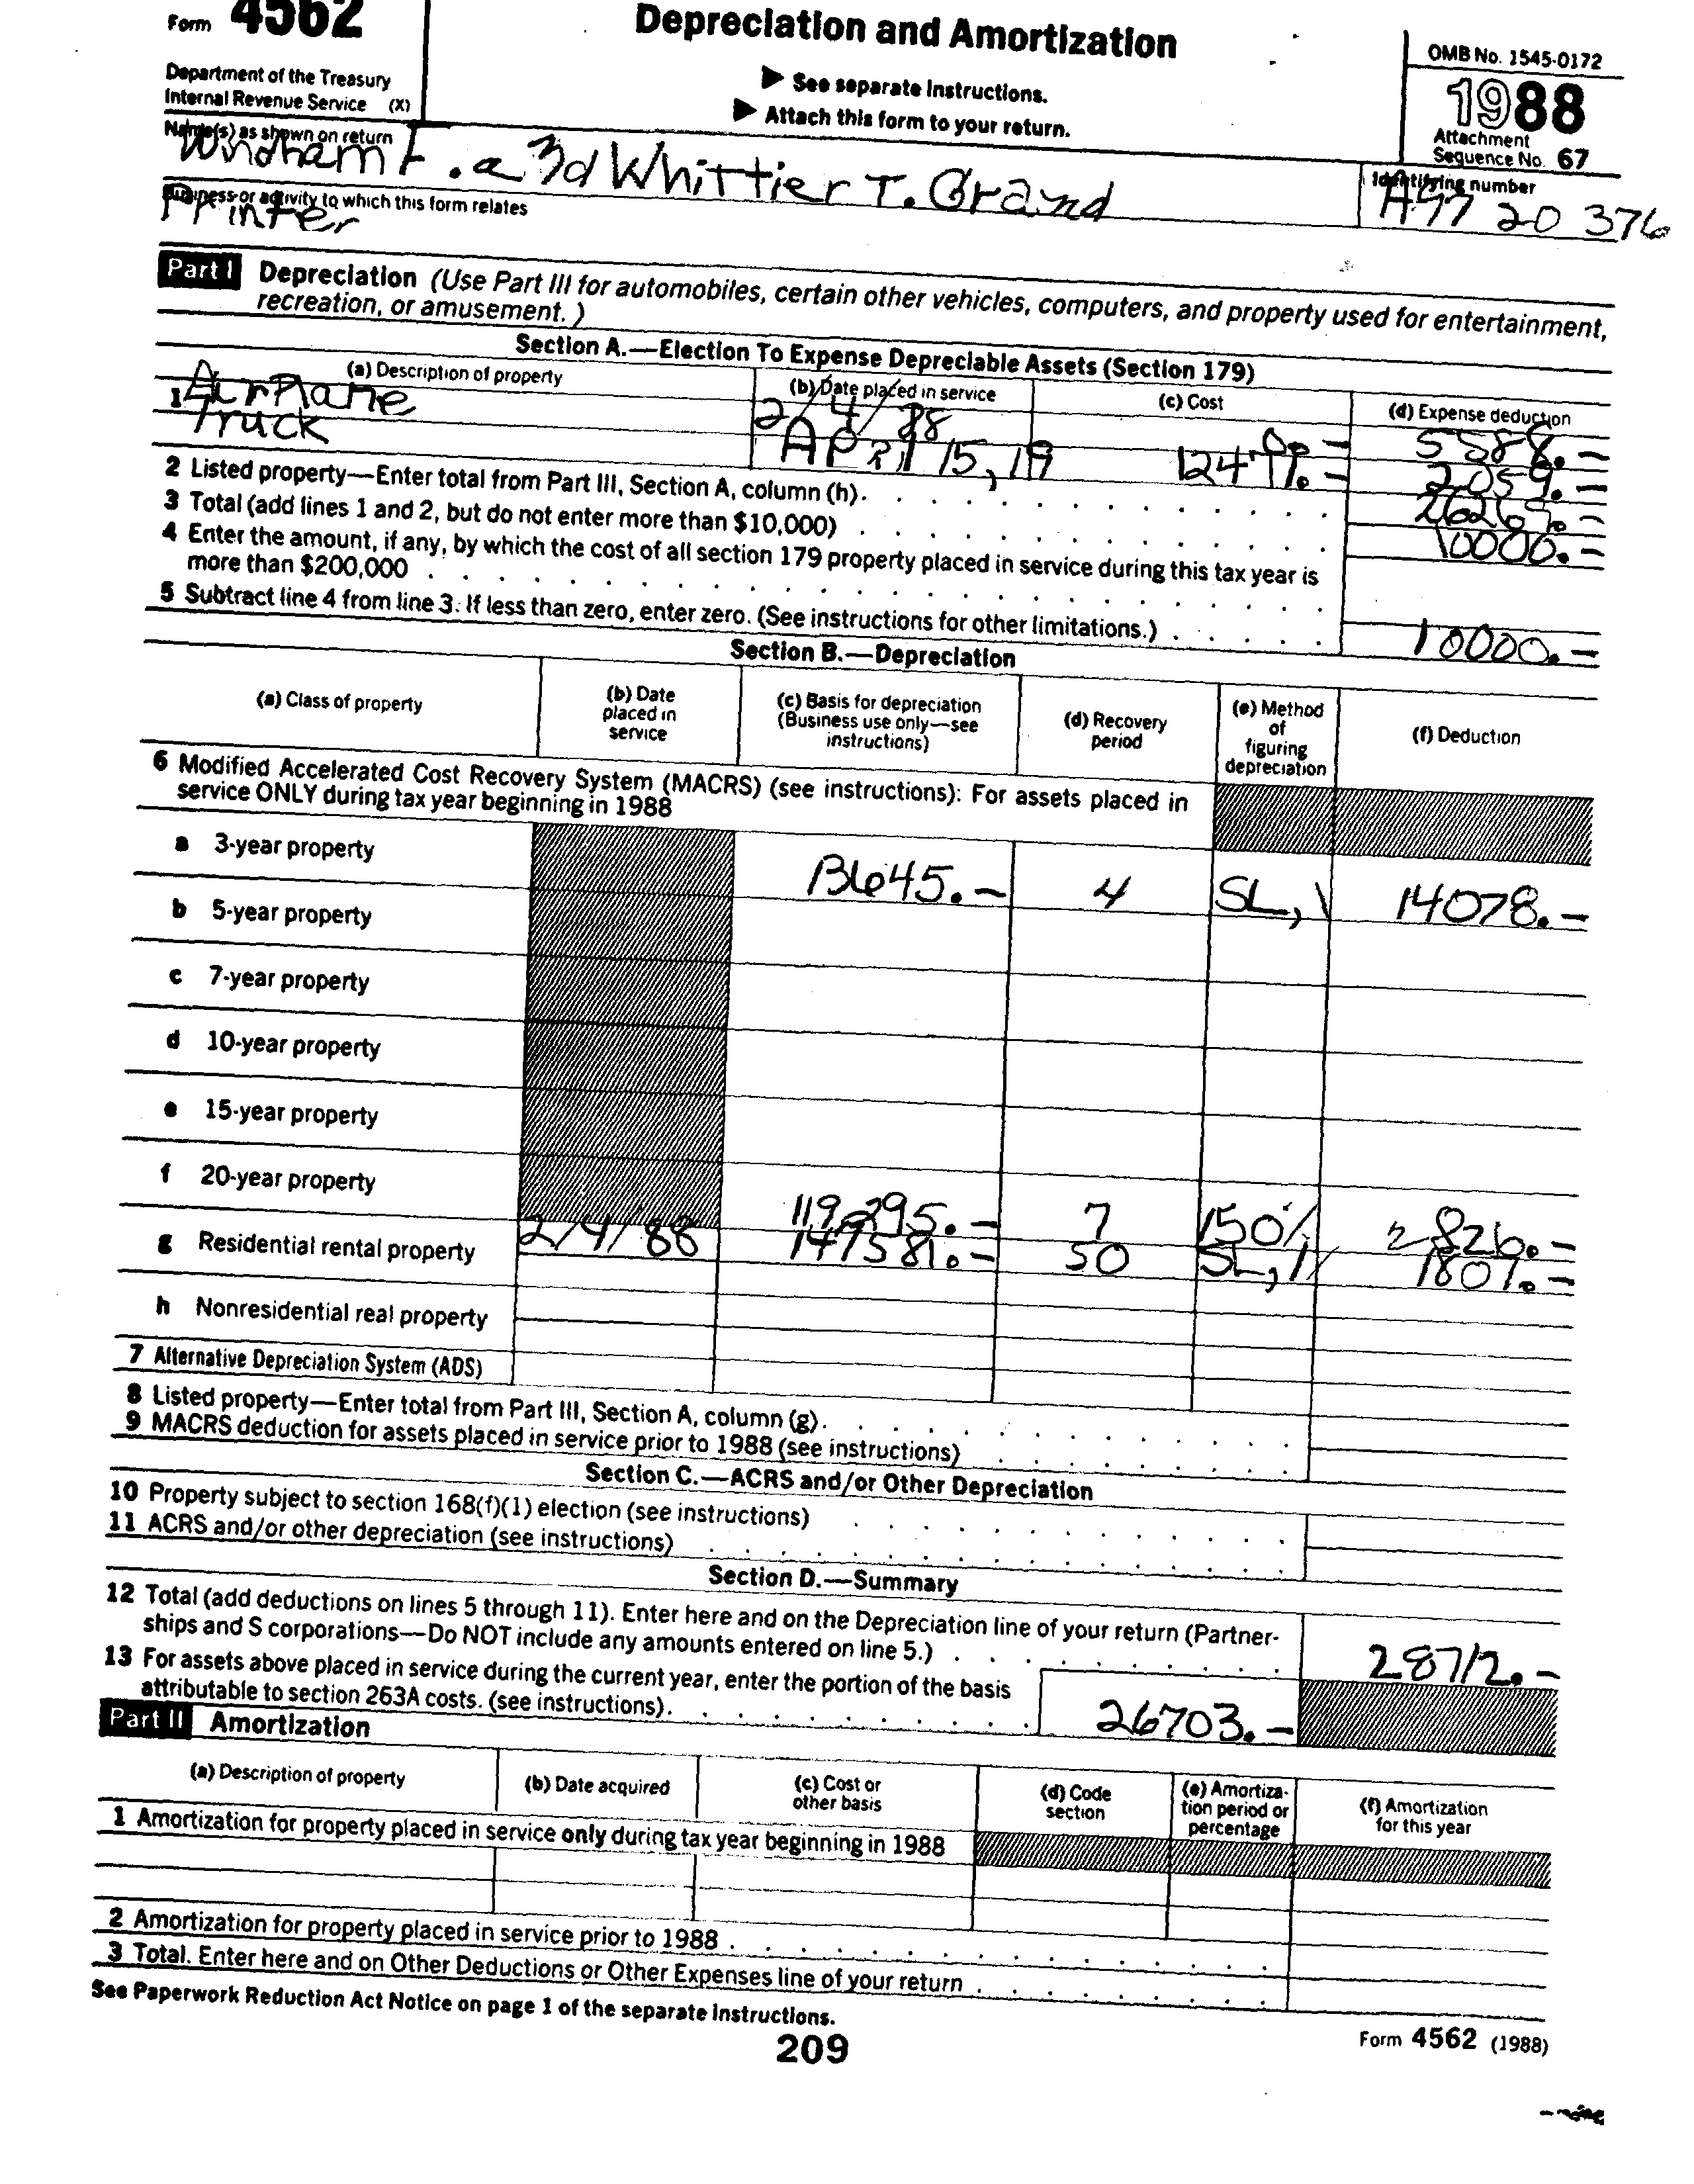 Form 4562
Depreciation and Amortization
OMB No. 1545-0172
Department of the Treasury
Internal Revenue Service (X)
▶ See separate Instructions.
▶ Attach this form to your return.
1988
Attachment
Sequence No. 67
Name(s) as shown on return
Windham F. a 3d Whittier T. Grand
Identifying number
20 376
Business or activity to which this form relates
Printer
Part I Depreciation (Use Part III for automobiles, certain other vehicles, computers, and property used for entertainment,
recreation, or amusement.)
Section A.—Election To Expense Depreciable Assets (Section 179)
(a) Description of property (b) Date placed in service (c) Cost (d) Expense deduction
1 Airplane 2/4/88 5588.-
Truck April 15, 19 2059.-
2 Listed property—Enter total from Part III, Section A, column (h). 26269.-
3 Total (add lines 1 and 2, but do not enter more than $10,000) 10000.-
4 Enter the amount, if any, by which the cost of all section 179 property placed in service during this tax year is
more than $200,000
5 Subtract line 4 from line 3. If less than zero, enter zero. (See instructions for other limitations.) 10000.-
Section B.—Depreciation
(a) Class of property (b) Date placed in service (c) Basis for depreciation (Business use only—see instructions) (d) Recovery period (e) Method of figuring depreciation (f) Deduction
6 Modified Accelerated Cost Recovery System (MACRS) (see instructions): For assets placed in
service ONLY during tax year beginning in 1988
a 3-year property 4 SL, 14078.-
b 5-year property
c 7-year property
d 10-year property
e 15-year property
f 20-year property 119295.- 7 150% 2826.-
g Residential rental property 2/4/88 147581.- 50 SL, 1809.-
h Nonresidential real property
7 Alternative Depreciation System (ADS)
8 Listed property—Enter total from Part III, Section A, column (g).
9 MACRS deduction for assets placed in service prior to 1988 (see instructions)
Section C.—ACRS and/or Other Depreciation
10 Property subject to section 168(f)(1) election (see instructions)
11 ACRS and/or other depreciation (see instructions)
Section D.—Summary
12 Total (add deductions on lines 5 through 11). Enter here and on the Depreciation line of your return (Partner-
ships and S corporations—Do NOT include any amounts entered on line 5.) 28712.-
13 For assets above placed in service during the current year, enter the portion of the basis
attributable to section 263A costs. (see instructions). 26703.-
Part II Amortization
(a) Description of property (b) Date acquired (c) Cost or other basis (d) Code section (e) Amortiza-tion period or percentage (f) Amortization for this year
1 Amortization for property placed in service only during tax year beginning in 1988
2 Amortization for property placed in service prior to 1988
3 Total. Enter here and on Other Deductions or Other Expenses line of your return
See Paperwork Reduction Act Notice on page 1 of the separate Instructions.
209
Form 4562 (1988)